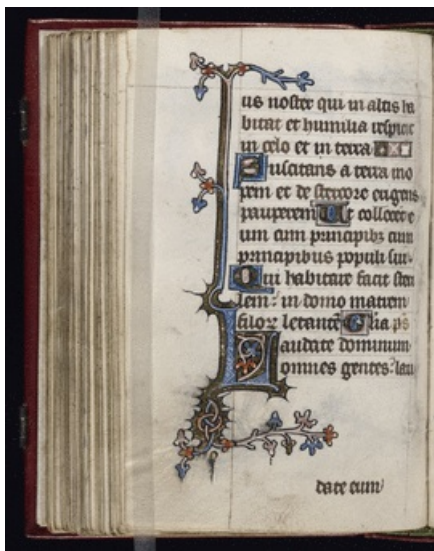 us noster qui in altis ha
bitat et humilia respicit
in celo et in terra
Suscitans a terra ino
pem et de stercore erigens
pauperem Ut collocet e
um cum principibz cum
principibus populi sui
Qui habitare facit ster
lem in domo matrem
filoꝝ letantē Glia ps
Laudate dominum
omnes gentes lau
date eum